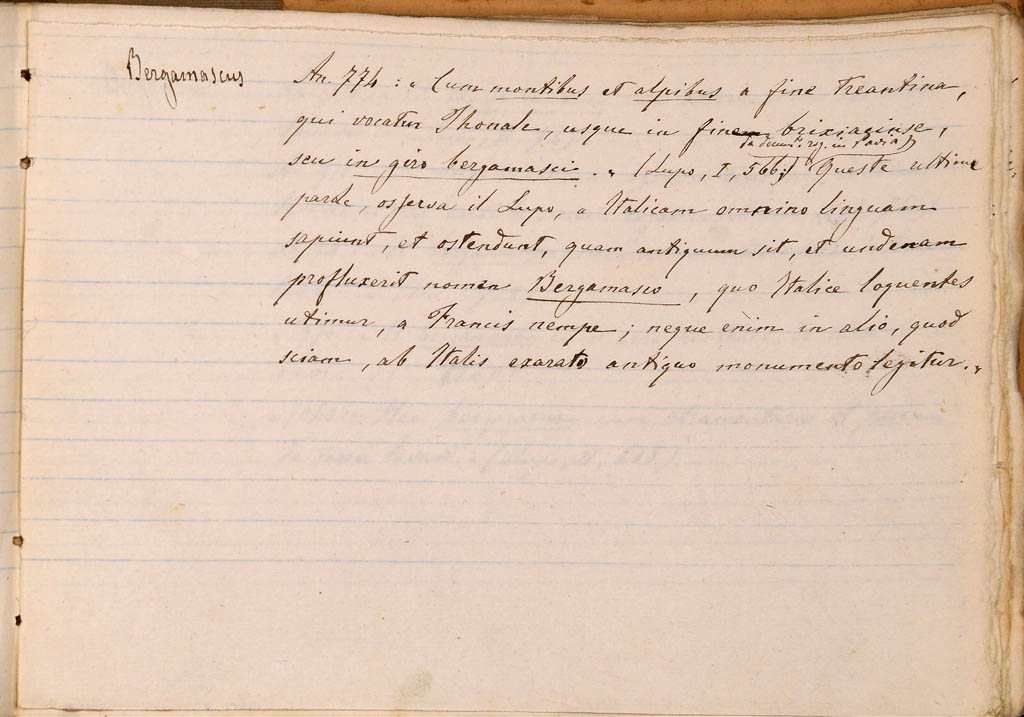 Bergamascus
An. 774: « Cum montibus et alpibus a fine treantina,
qui vocatur Thonale, usque in finem brixiaginse,
[da docum.º rog. in Pavia]
seu in giro bergamasci. » (Lupo, I, 566.) Queste ultime
parole, osserva il Lupo, « Italicam omnino linguam
sapiunt, et ostendunt, quam antiquum sit, et undenam
profluxerit nomen Bergamasco, quo Italice loquentes
utimur, a Francis nempe; neque enim in alio, quod
sciam, ab Italis exarato antiquo monumento legitur. »